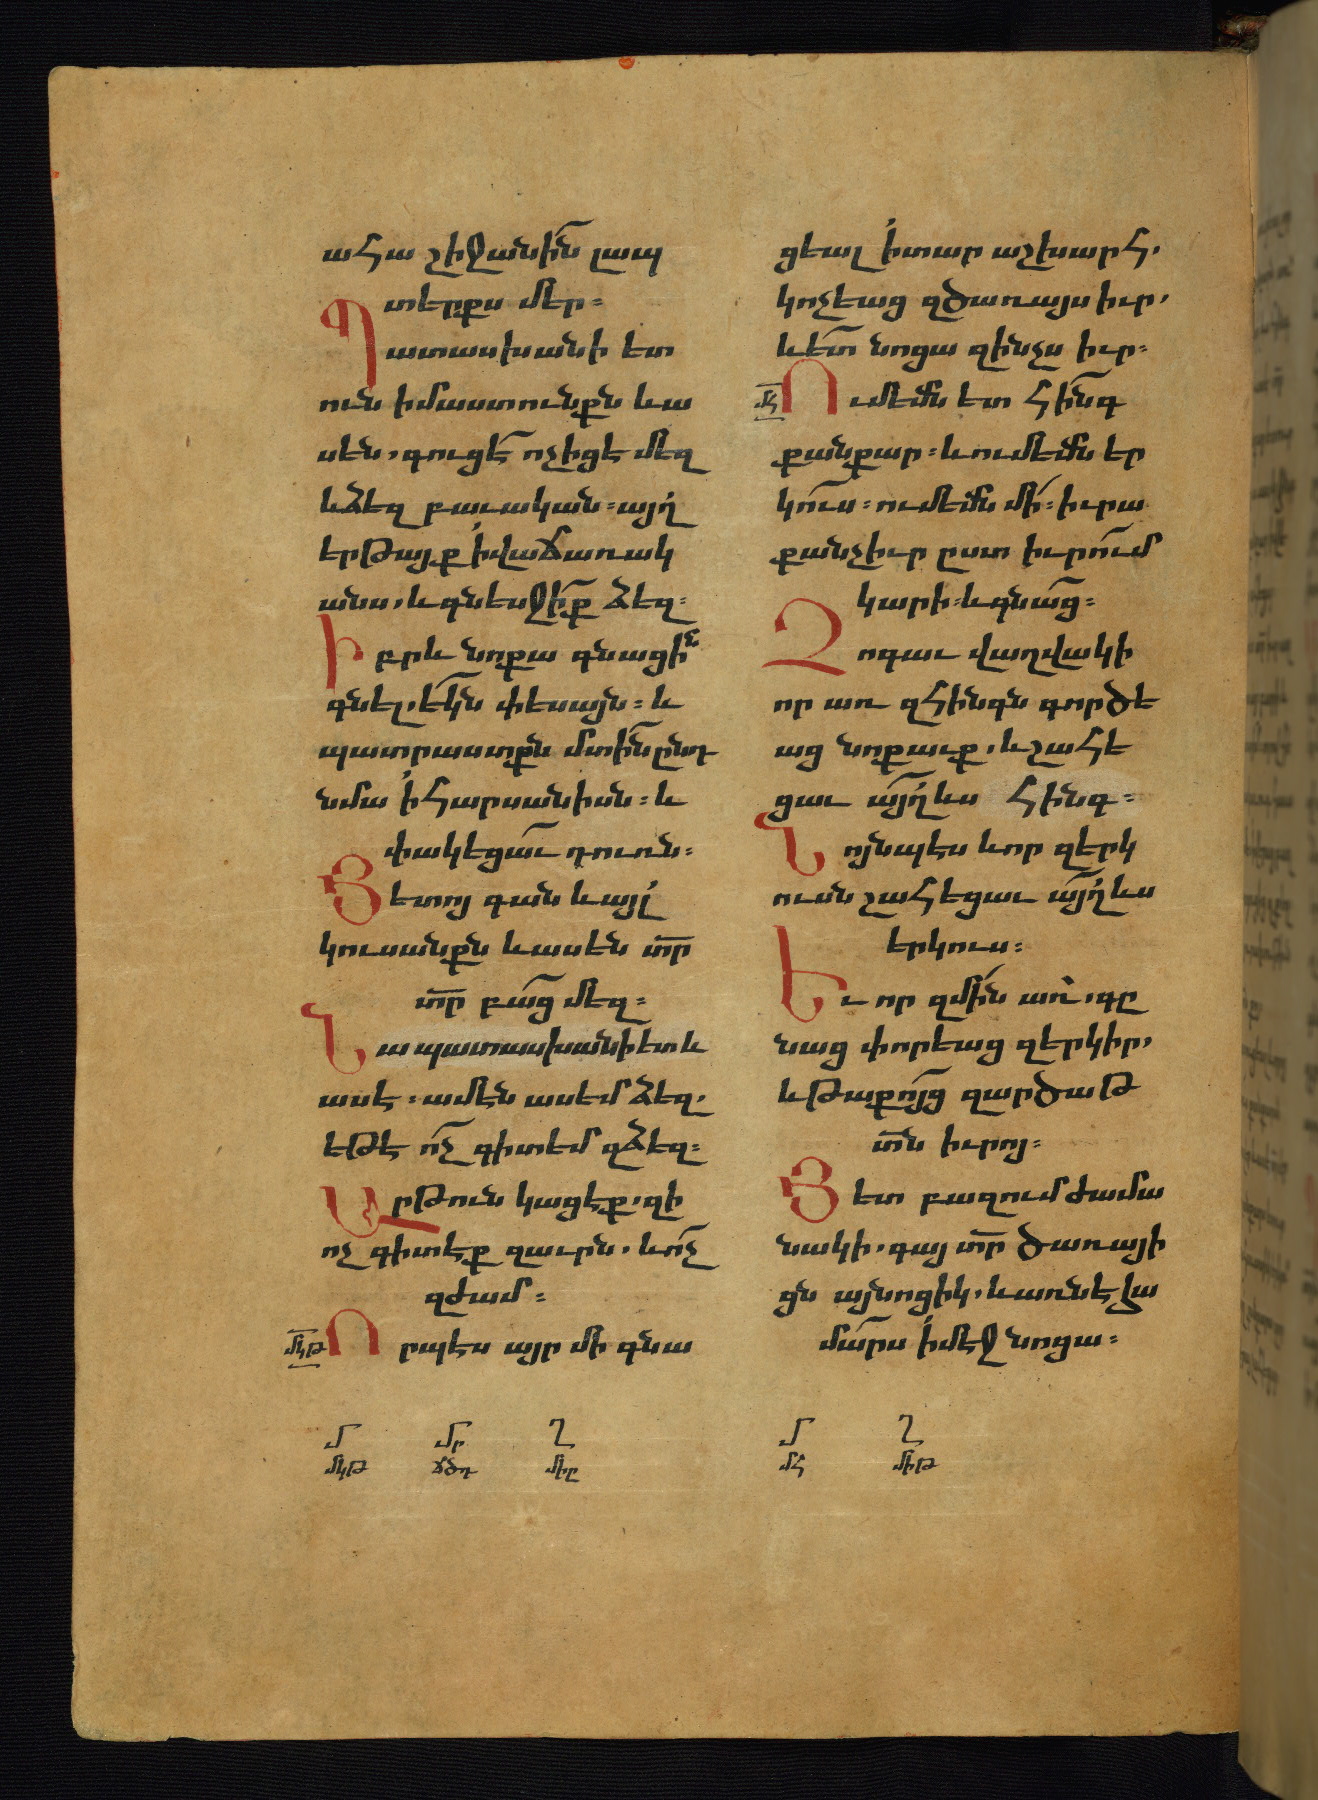 ահա շիջանին լապ
տերքս մեր։
Պատասխանի ետ
ուն իմաստունքն և ա
սեն, գուցէ ոչ իցէ մեզ
և ձեզ բաւական։ այղ
երթայք ի վաճառակ
անս, և գնեսջիք ձեզ։
Իբրև նոքա գնացին
գնել, եկն փեսայն։ և
պատրաստքն մտին ընդ
նմա ի հարսանիսն։ և
փակեցաւ դուռն։
Յետոյ գան և այլ
կուսանքն և ասեն տր
տր բաց մեզ։
Նա պատասխանի ետ և
ասէ։ ամէն ասեմ ձեզ,
եթէ ոչ գիտեմ զձեզ։
Արթուն կացէք, զի
ոչ գիտէք զաւրն, և ոչ
զժամ։
մկթ Որպէս այր մի գնա
մ մր ղ
մկթ ճծդ միը
ցեալ ի տար աշխարհ,
կոչեաց զծառայս իւր,
և ետ նոցա զինչս իւր։
մհ Ումեմն ետ հինգ
քանքար։ և ումեմն եր
կուս։ ումեմն մի։ իւրա
քանչիւր ըստ իւրում
կարի։ և գնաց։
Չոգաւ վաղվակի
որ առ զհինգն գործե
աց նոքաւք, և շահե
ցաւ այղ ևս հինգ։
Նոյնպէս և որ զերկ
ուսն շահեցաւ այղ ևս
երկուս։
Եւ որ զմին առ, գը
նաց փորեաց զերկիր,
և թաքոյց զարծաթ
տն իւրոյ։
Յետ բազում ժամա
նակի, գայ տր ծառայի
ցն այնոցիկ, և առնէ հա
մարս ի մէջ նոցա։
մ ղ
մհ միթ